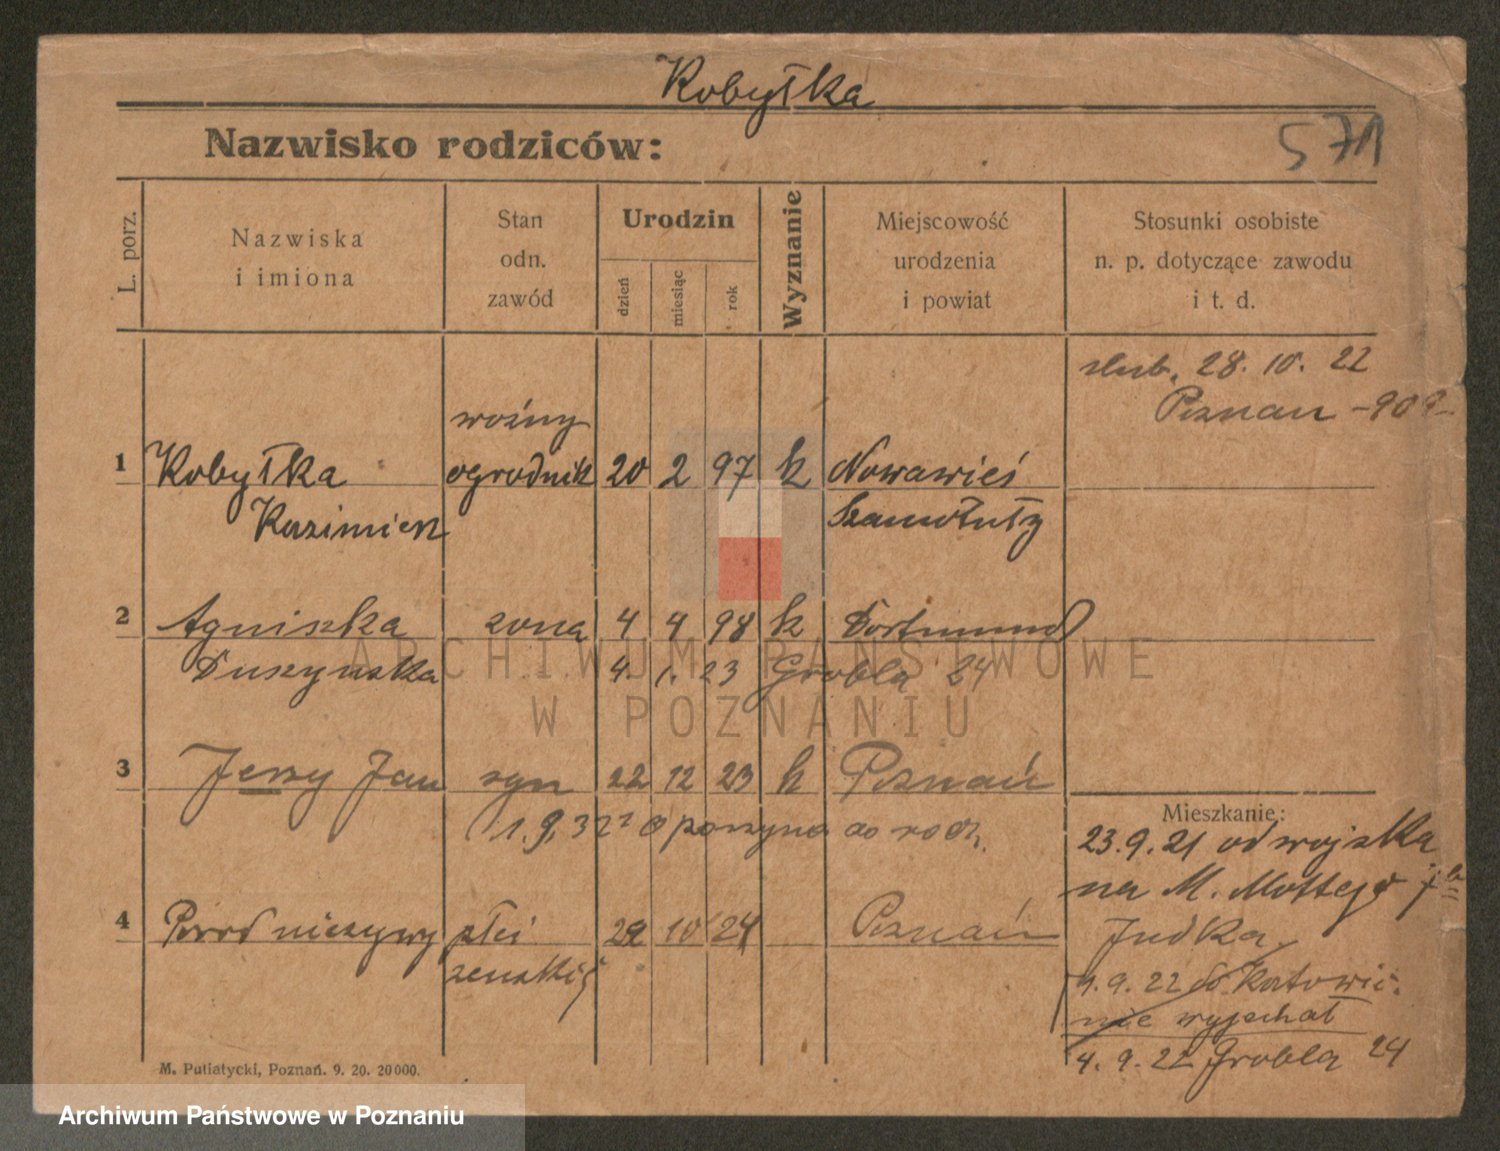 Kobyłka
Nazwisko rodziców:
571
L. porz.
Nazwiska
i imiona
Stan
odn.
zawód
Urodzin
dzień
miesiąc
rok
Wyznanie
Miejscowość
urodzenia
i powiat
Stosunki osobiste
n. p. dotyczące zawodu
i t. d.
ślub. 28. 10. 22
Poznań - 909
woźny
1 Kobyłka ogrodnik 20 2 97 k Nowawieś
Kazimierz Szamotuły
2 Agniszka żona 4 4 98 k Dortmund
Duszyńska 4. 1. 23 Grobla 24
3 Jerzy Jan syn 22 12 23 k Poznań
1. 9. 32 do rodz.
Mieszkanie:
23. 9. 21 od wojska
na M. Mottego
4 Poród nieżywy płci 22 10 24 Poznań
żeńskiej
Judka
1. 9. 22 do Katowic.
nie wyjechał
4. 9. 22 Grobla 24
M. Putiatycki, Poznań. 9. 20. 20000.
ARCHIWUM PAŃSTWOWE
W POZNANIU
Archiwum Państwowe w Poznaniu